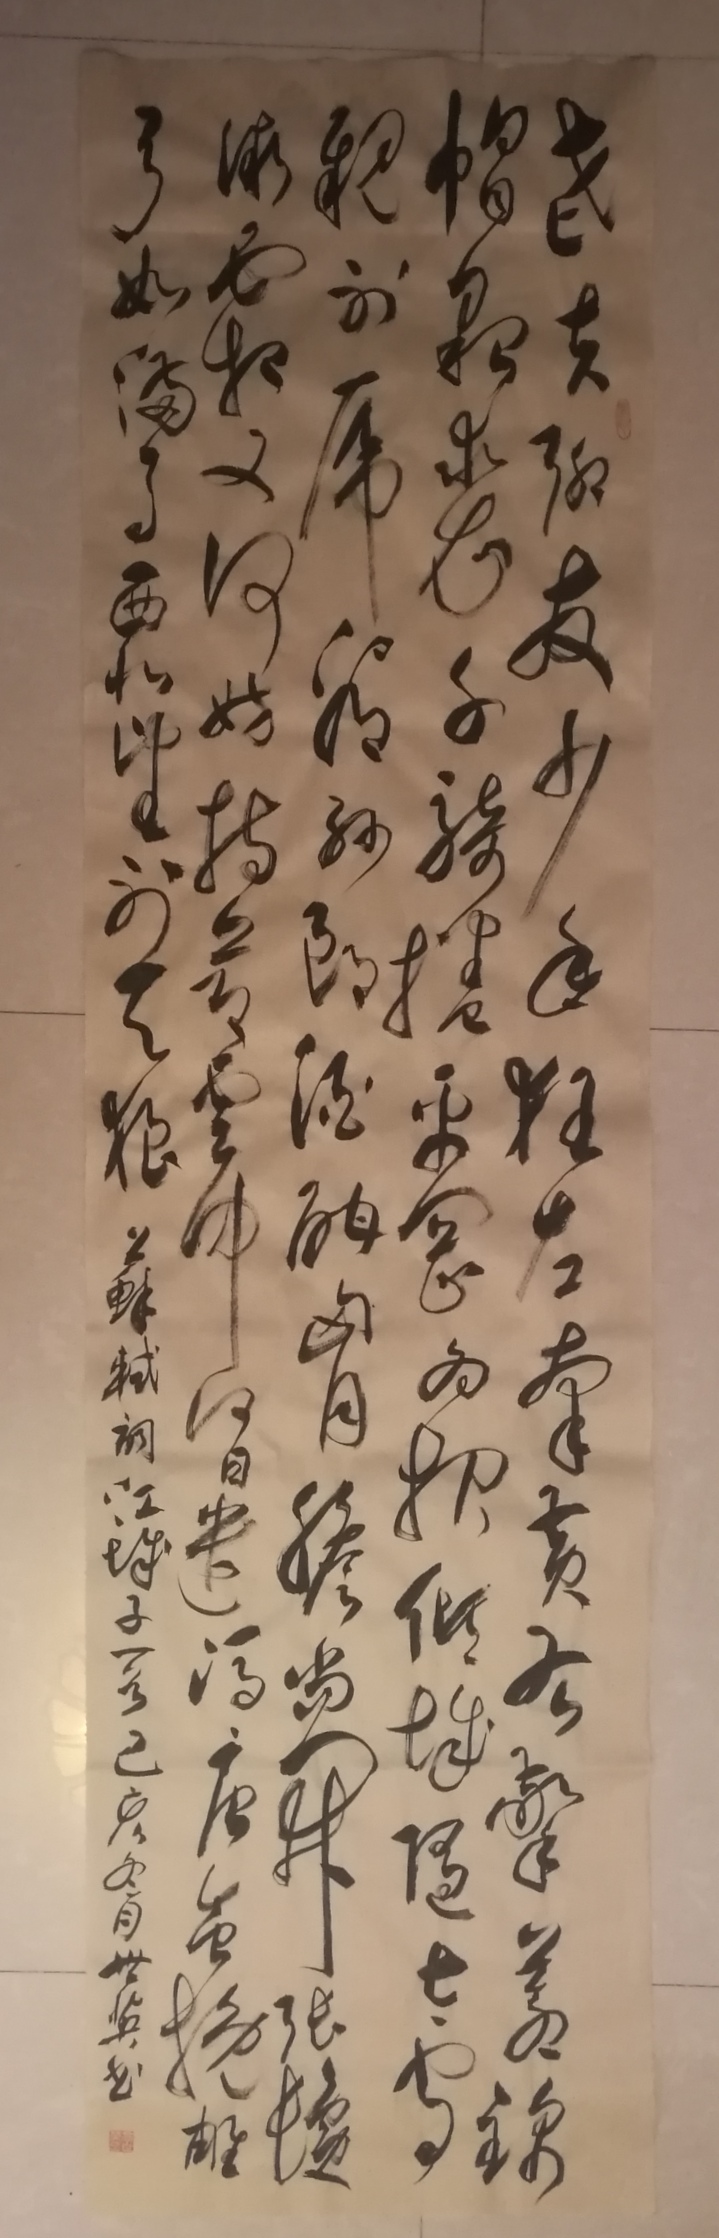 老夫聊發少年狂左牽黃右擎蒼錦
帽貂裘千騎捲平岡為報傾城隨太守
親射虎看孫郎酒酣胸膽尚開張鬢
微霜又何妨持節雲中何日遣馮唐會挽雕
弓如滿月西北望射天狼 蘇軾詞江城子一首己亥冬月世書